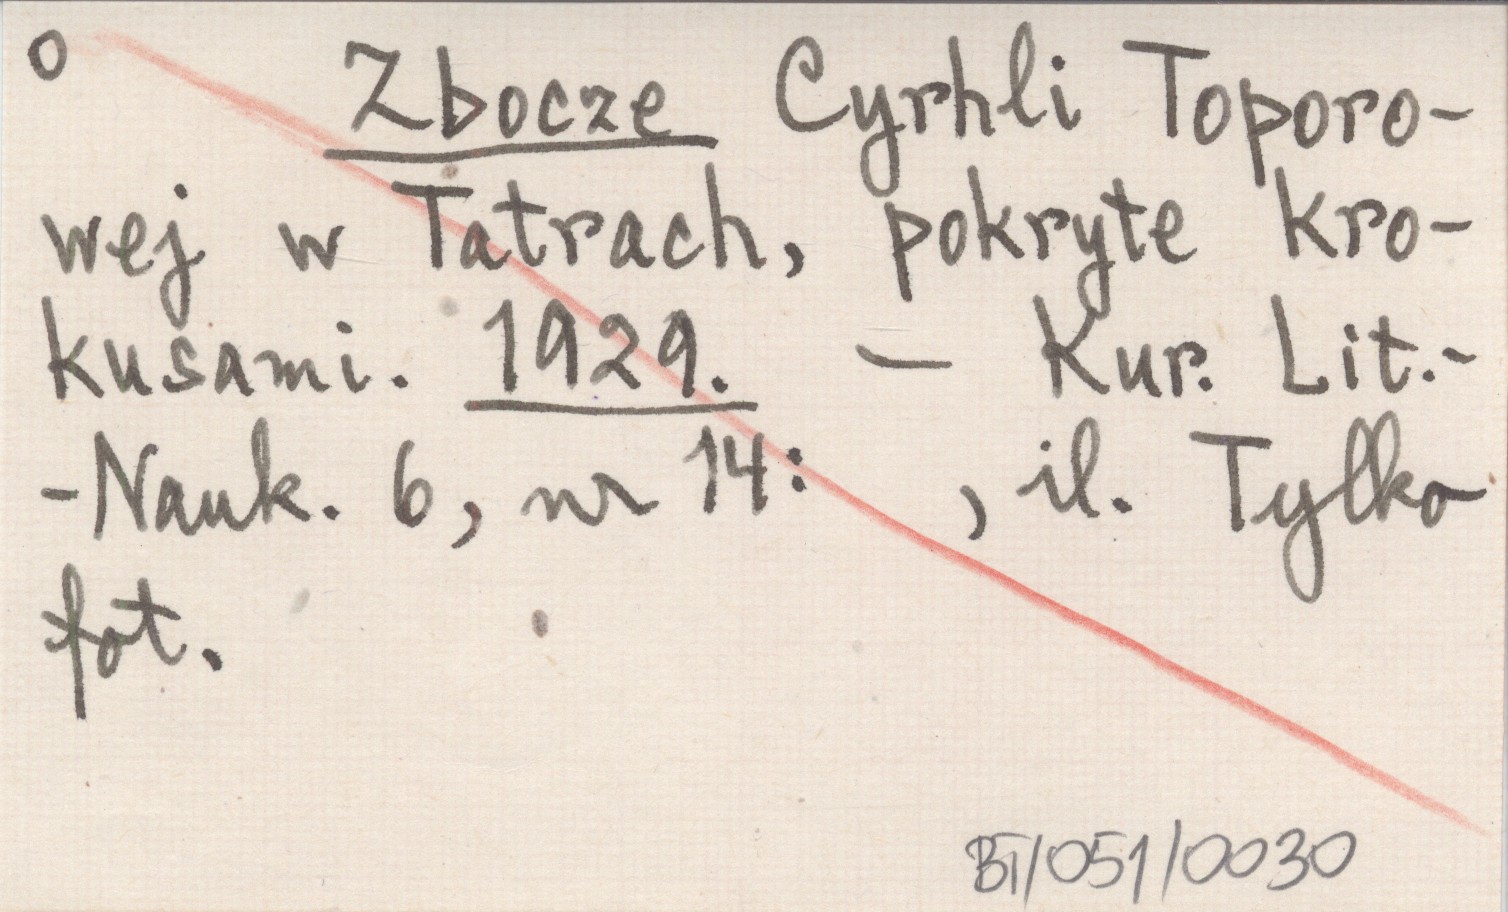 o Zbocze Cyrhli Toporo-
wej w Tatrach, pokryte kro-
kusami. 1929. — Kur. Lit.-
-Nauk. 6, nr 14: , il. Tylko
fot.
BT/051/0030